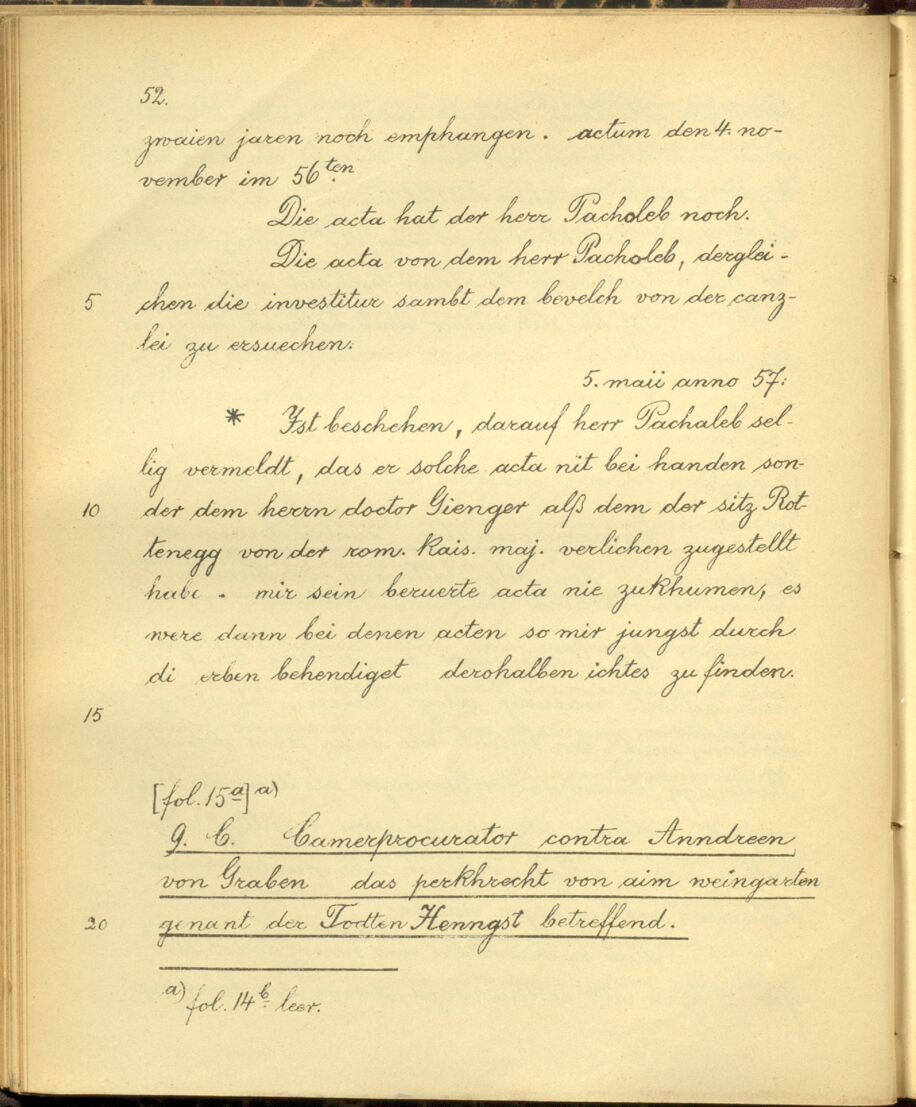 52.
zwaien jaren noch emphangen. actum den 4. no-
vember im 56ten
Die acta hat der herr Pacholeb noch.
Die acta von dem herr Pacholeb, derglei-
5 chen die investitur sambt dem bevelch von der canz-
lei zu ersuechen.
5. maii anno 57:
* Yst beschehen, darauf herr Pachaleb sel-
lig vermeldt, das er solche acta nit bei handen son-
10 der dem herrn doctor Gienger alß dem der sitz Rot-
tenegg von der rom. kais. maj. verlichen zugestellt
habe. mir sein beruerte acta nie zukhumen, es
were dann bei denen acten so mir jungst durch
di erben behendiget derohalben ichtes zu finden.
15
[fol. 15a] a)
9. C. Camerprocurator contra Anndreen
von Graben das perkhrecht von aim weingarten
20 genant der Todten Henngst betreffend.
a) fol. 14b leer.